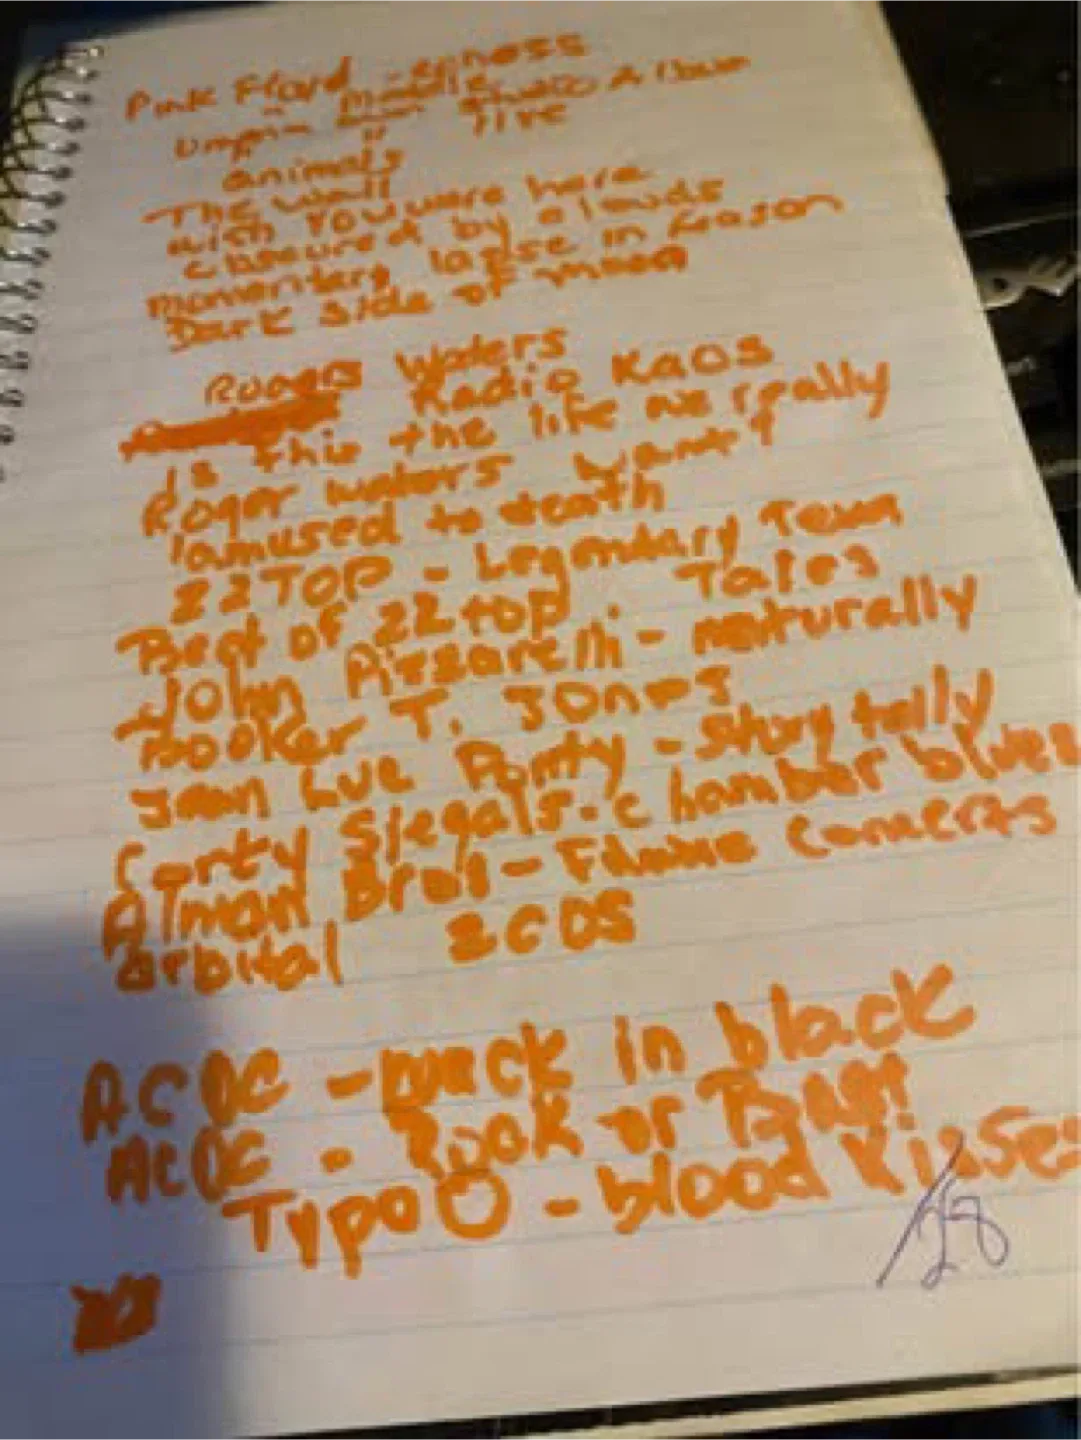 Pink Floyd - echoess
" Meddle
Ummn Studio Album
" live
animals
The wall
wish You were here
obscured by clouds
momentery lapse in reason
Dark side of moon
Rogers Waters
Radio KAOS
is this the life we really
Roger waters want?
amused to death
ZZ TOP - Legendary Texas
Best of ZZ top . Tales
John Pizzarelli - naturally
Booker T. Jones
Jean Luc Ponty - Story telly
Corky Siegals - chamber blues
Alman Bros - Filmore Concerts
orbital 2CDS
ACDC - back in black
ACDC - Rock or Bust
Typo O - blood Kisses